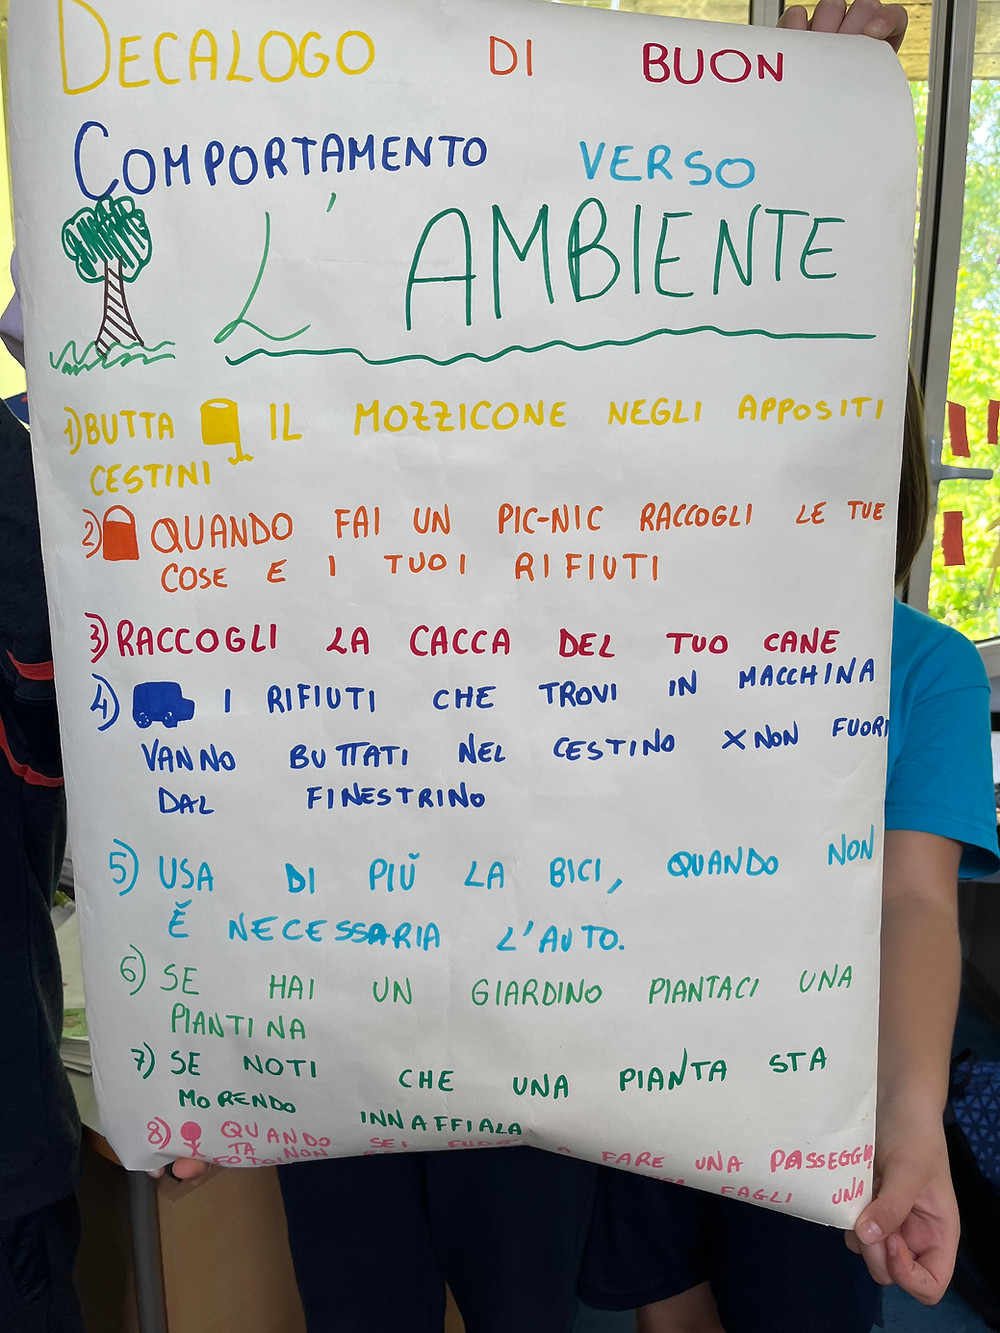 DECALOGO DI BUON
COMPORTAMENTO VERSO
L'AMBIENTE
1) BUTTA IL MOZZICONE NEGLI APPOSITI
CESTINI
2) QUANDO FAI UN PIC-NIC RACCOGLI LE TUE
COSE E I TUOI RIFIUTI
3) RACCOGLI LA CACCA DEL TUO CANE
4) I RIFIUTI CHE TROVI IN MACCHINA
VANNO BUTTATI NEL CESTINO X NON FUORI
DAL FINESTRINO
5) USA DI PIÙ LA BICI, QUANDO NON
È NECESSARIA L'AUTO.
6) SE HAI UN GIARDINO PIANTACI UNA
PIANTINA
7) SE NOTI CHE UNA PIANTA STA
MORENDO INNAFFIALA
8) QUANDO SEI FUORI A FARE UNA PASSEGGIA
TA NON FAGLI UNA